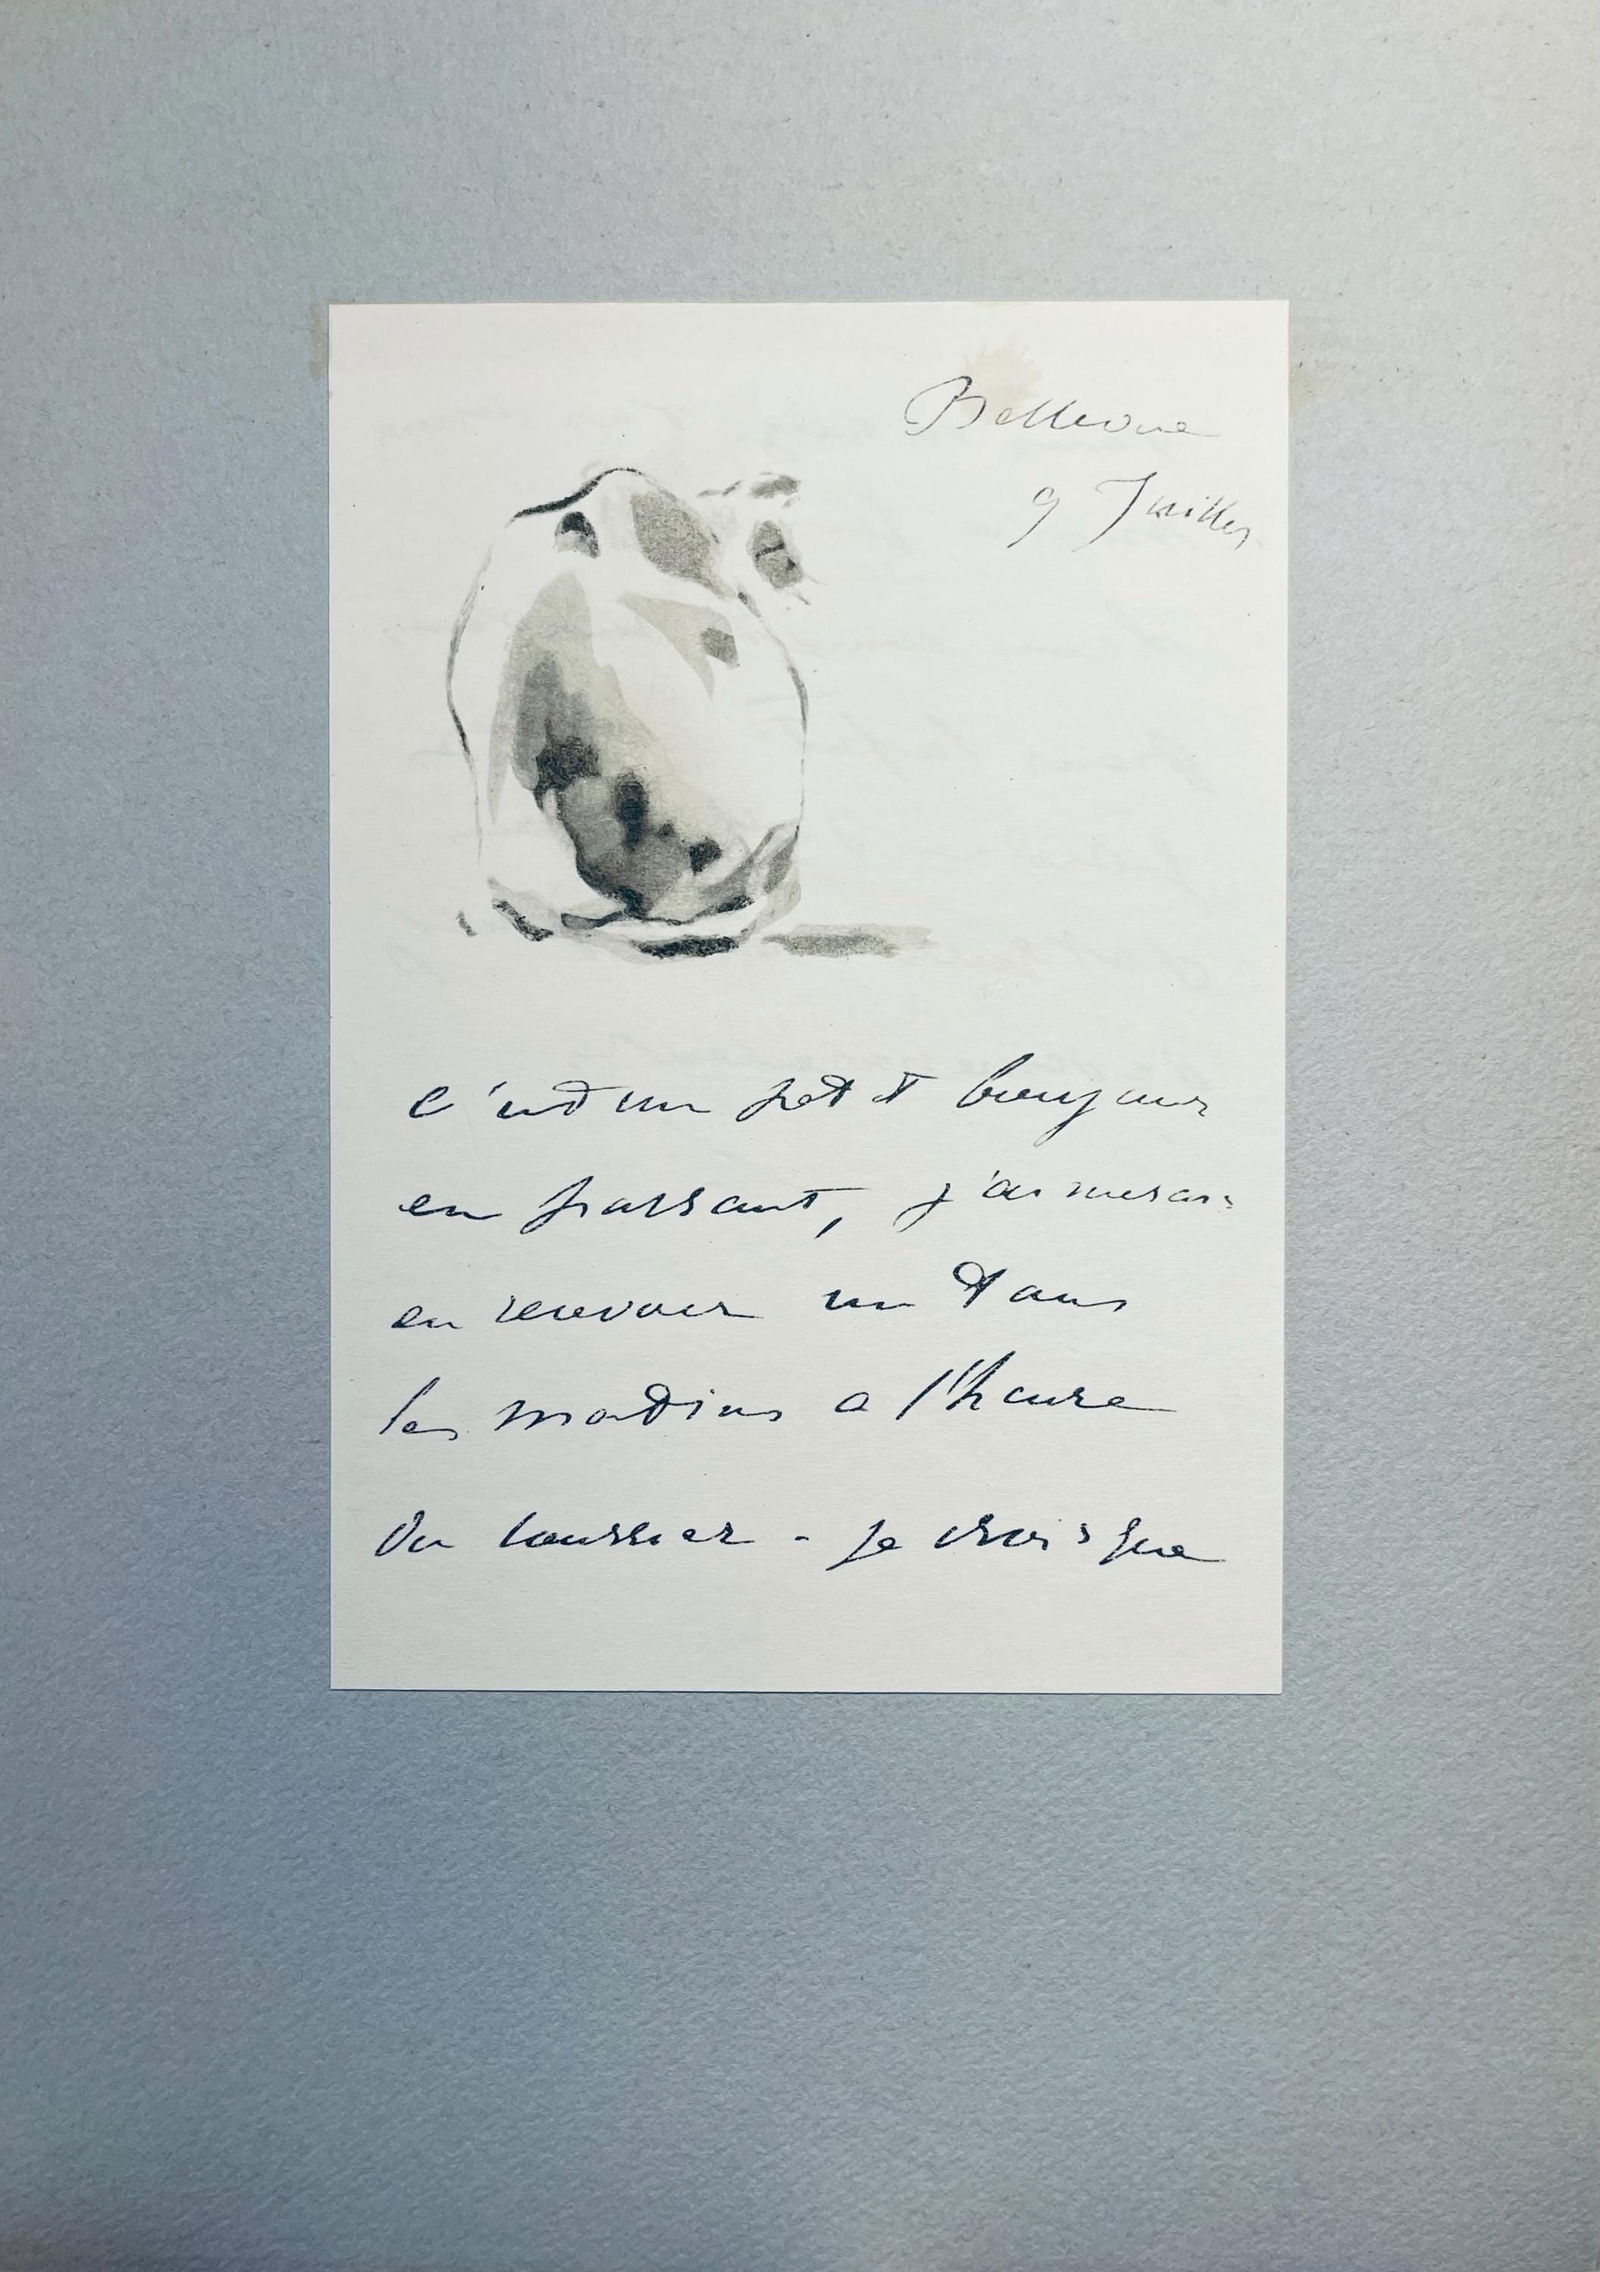 Bellevue
9 Juillet
c'est un petit bonjour
en passant, j'aimerais
en recevoir un dans
les matins a l'heure
du courrier - je crois que